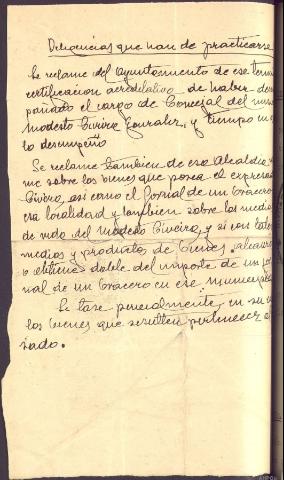 Diligencias que han de practicarse
Se reclame del Ayuntamiento de ese termi
certificacion acreditativo de haber dese
pañado el cargo de Concejal del mism
Modesto Civiro Gonzalez, y tiempo en q
lo desempeño
Se reclame tambien de esa Alcaldia,
me sobre los bienes que posea el expresa
Civiro, asi como el Jornal de un bracero
esa localidad y tambien sobre los medio
de vida del Modesto Civeiro, y si con tales
medios y producto de bienes, alcanz
o obtiene doble del importe de un jor
nal de un bracero en ese municipio
Se tase pericialmente, en su
los bienes que resulten pertenecer al
sado.